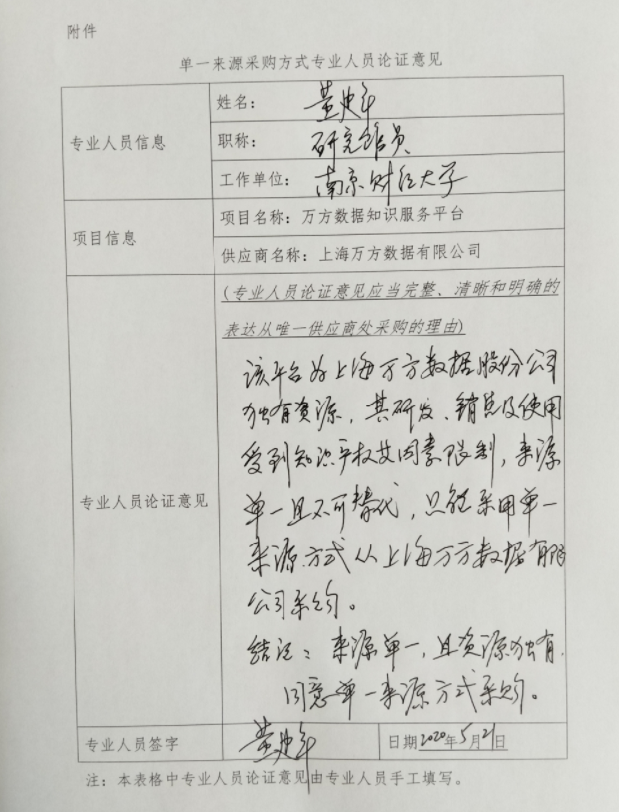 附件
单一来源采购方式专业人员论证意见
专业人员信息
姓名：
职称：研究馆员
工作单位：南京财经大学
项目信息
项目名称：万方数据知识服务平台
供应商名称：上海万方数据有限公司
专业人员论证意见
(专业人员论证意见应当完整、清晰和明确的
表达从唯一供应商处采购的理由)
该平台为上海万方数据股份公司
独有资源，其研发、销售及使用
受到知识产权等因素限制，来源
单一且不可替代，只能采用单一
来源方式从上海万方数据有限
公司采购。
结论：来源单一，且资源独有，
同意单一来源方式采购。
专业人员签字
日期2020年5月21日
注：本表格中专业人员论证意见由专业人员手工填写。